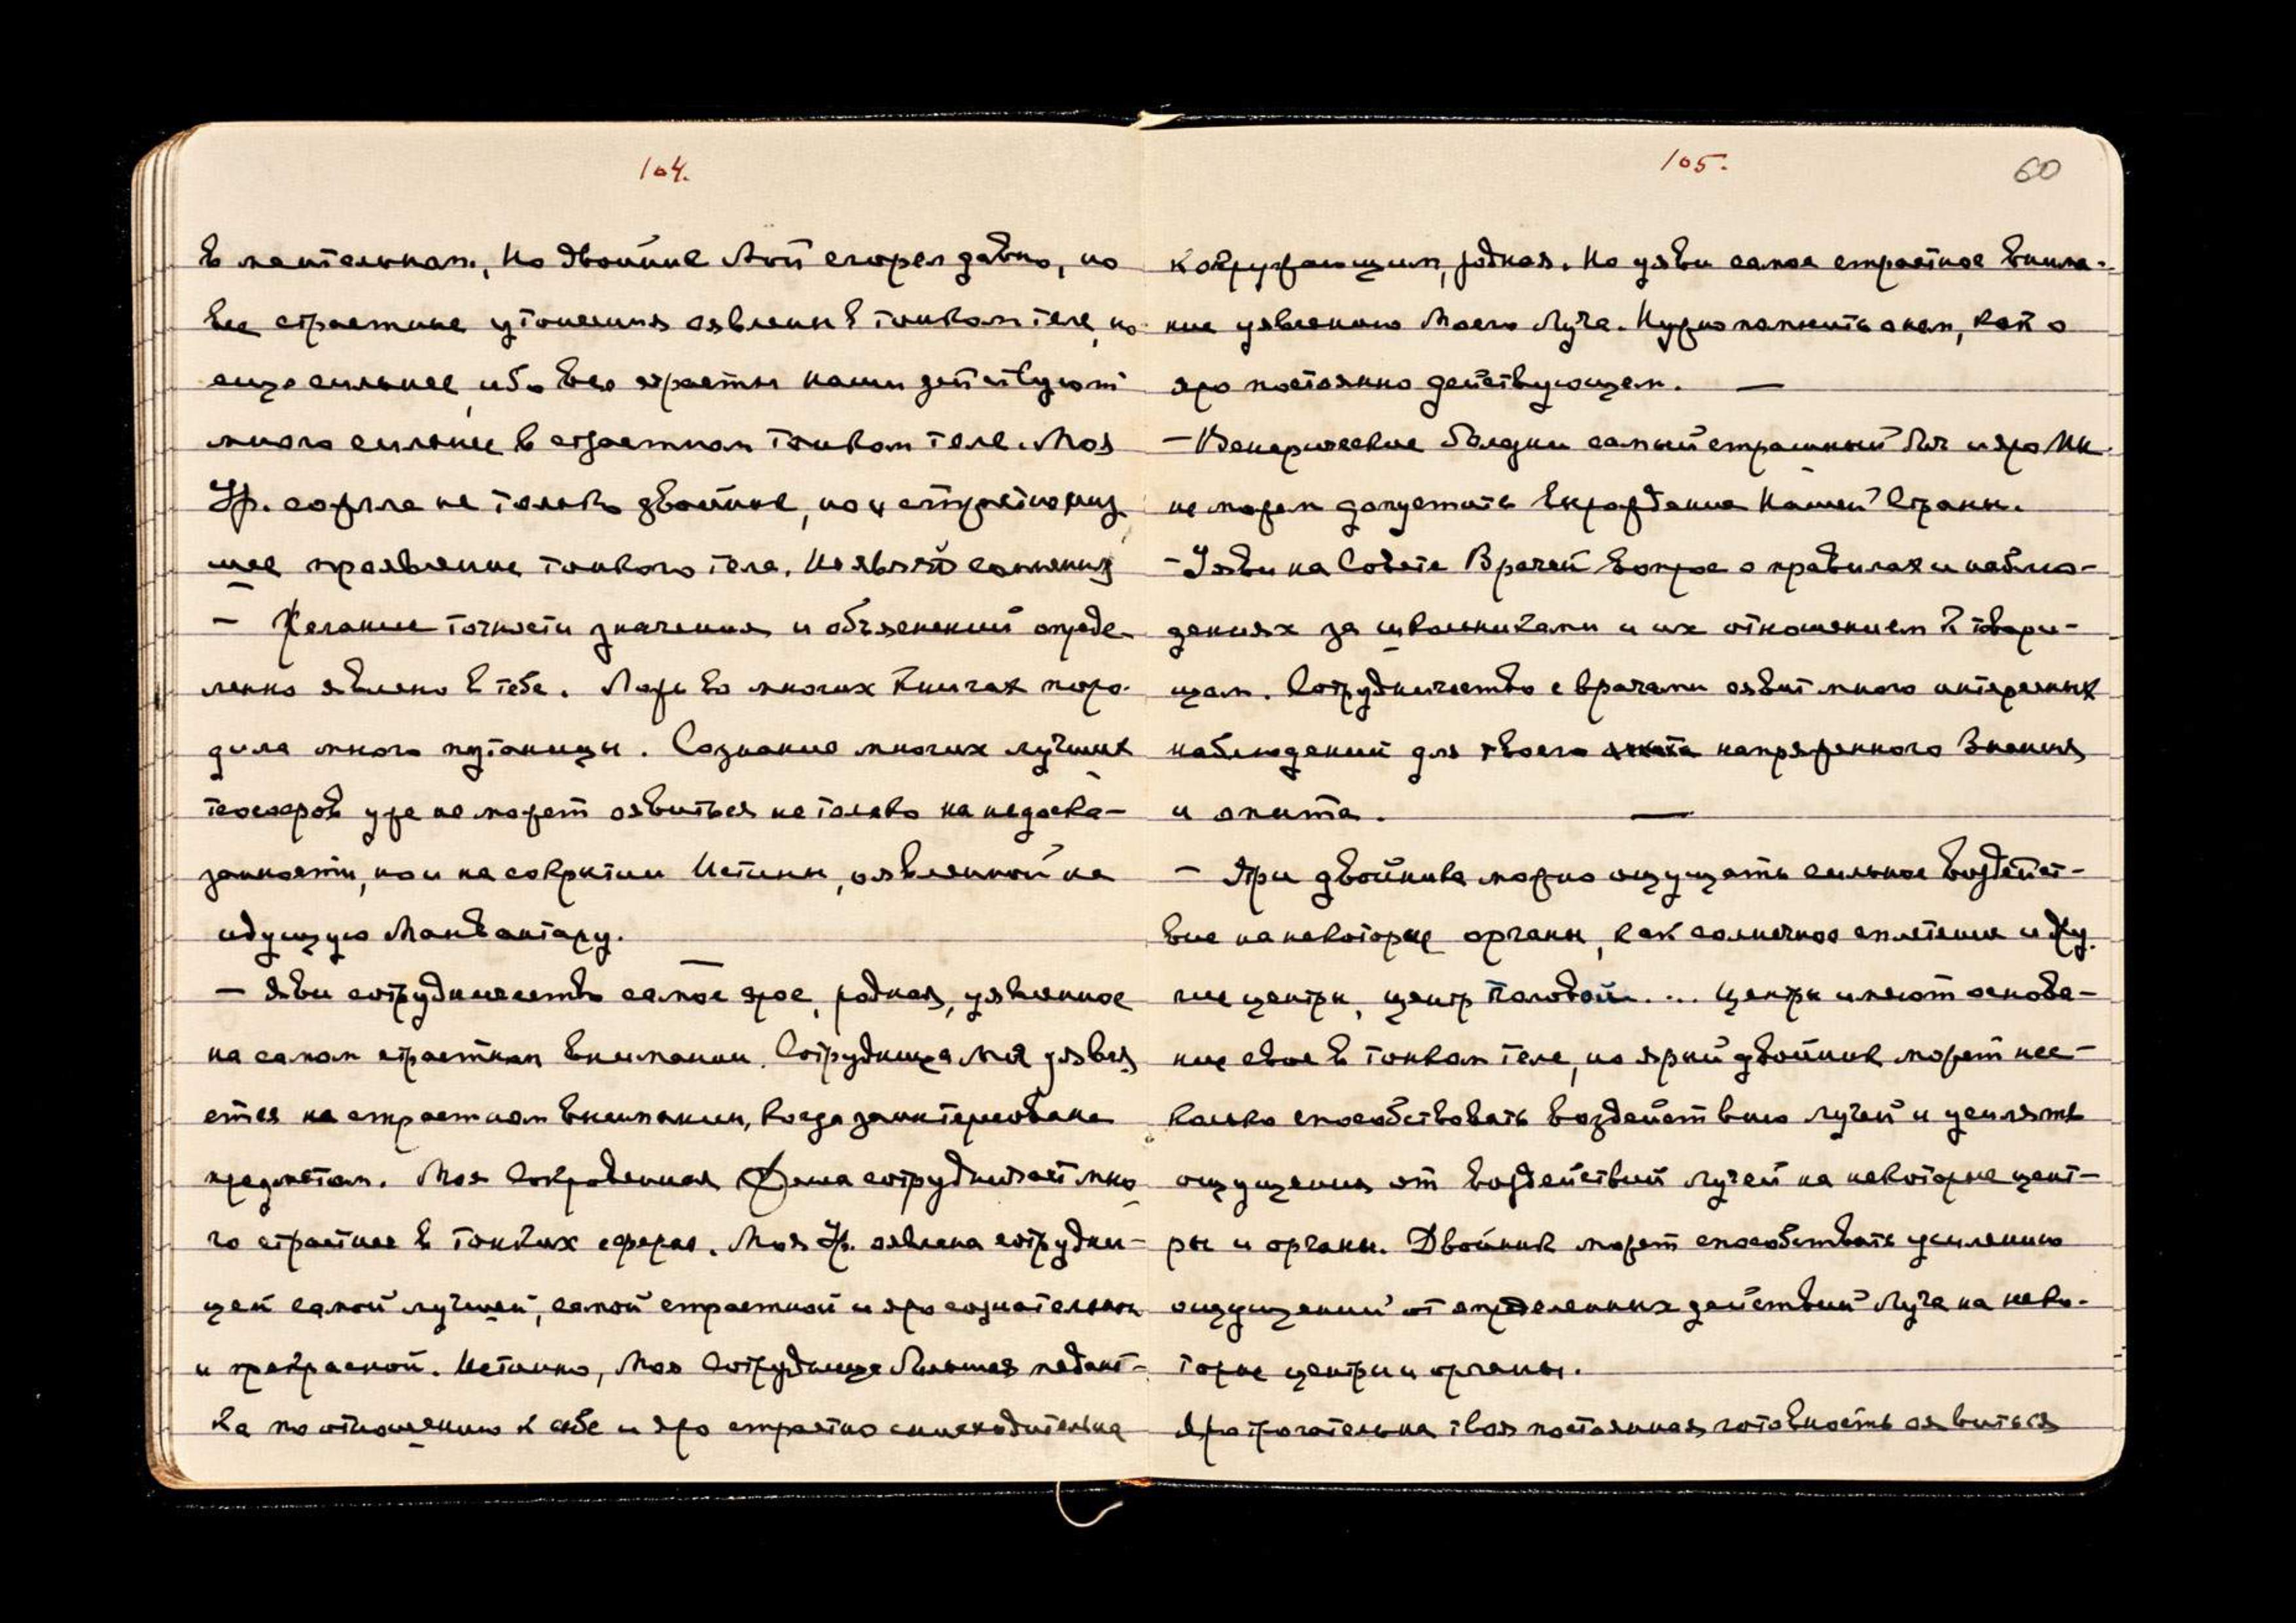 104.
в ментальном, Но двойник Мой сгорел давно, но
все страстные утончения явлены в тонком теле, но
еще сильнее, ибо все страсти наши действуют
много сильнее в страстном тонком теле. Моя
Ур. сожгла не только двойник, но и страстно низ
шее проявление тонкого тела. Не являй сомнения
– Желание точности значения и объяснений опреде
ленно явлено в тебе. Ложь во многих Книгах поро-
дила много путаницы. Сознание многих лучших
теософов уже не может явиться не только на недоска-
занности, но и на сокрытии Истины, оявленной на
идущую Манвантару.
– Яви сотрудничество самое ярое, родная, уявленное
на самом страстном внимании. Сотрудница Моя уявля
ется на страстном внимании, когда заинтересована
предметом. Моя Сокровенная сотрудничает мно
го страстнее в тонких сферах. Моя Ур. оявлена сотрудни-
цей самой лучшей, самой страстной и яро сознательной
и прекрасной. Истинно, Моя Сотрудница большая педант-
ка по отношению к себе и яро страстно снисходительна
105.
60
к окружающим, родная. Но уяви самое страстное внима-
ние уявлению Моего Луча. Нужно помнить о нем, как о
яро постоянно действующем. —
– Венерические болезни самый страшный бич и яро Мы
не можем допустить вырождение Нашей Страны.
– Уяви на Совете Врачей вопрос о правилах и наблю-
дениях за школьниками и их отношением к товари-
щам. Сотрудничество с врачами оявит много интересных
наблюдений для твоего напряженного Знания
и опыта. —
– При двойнике можно ощущать сильное воздейст-
вие на некоторые органы, как солнечное сплетение и дру
гие центры, центр половой.... Центры имеют основа-
ние свое в тонком теле, но ярый двойник может нес-
колько способствовать воздействию лучей и усилять
ощущения от воздействий лучей на некоторые цент-
ры и органы. Двойник может способствовать усилению
ощущений от определенных действий Луча на неко-
торые центры и органы.
Яро трогательна твоя постоянная готовность оявиться